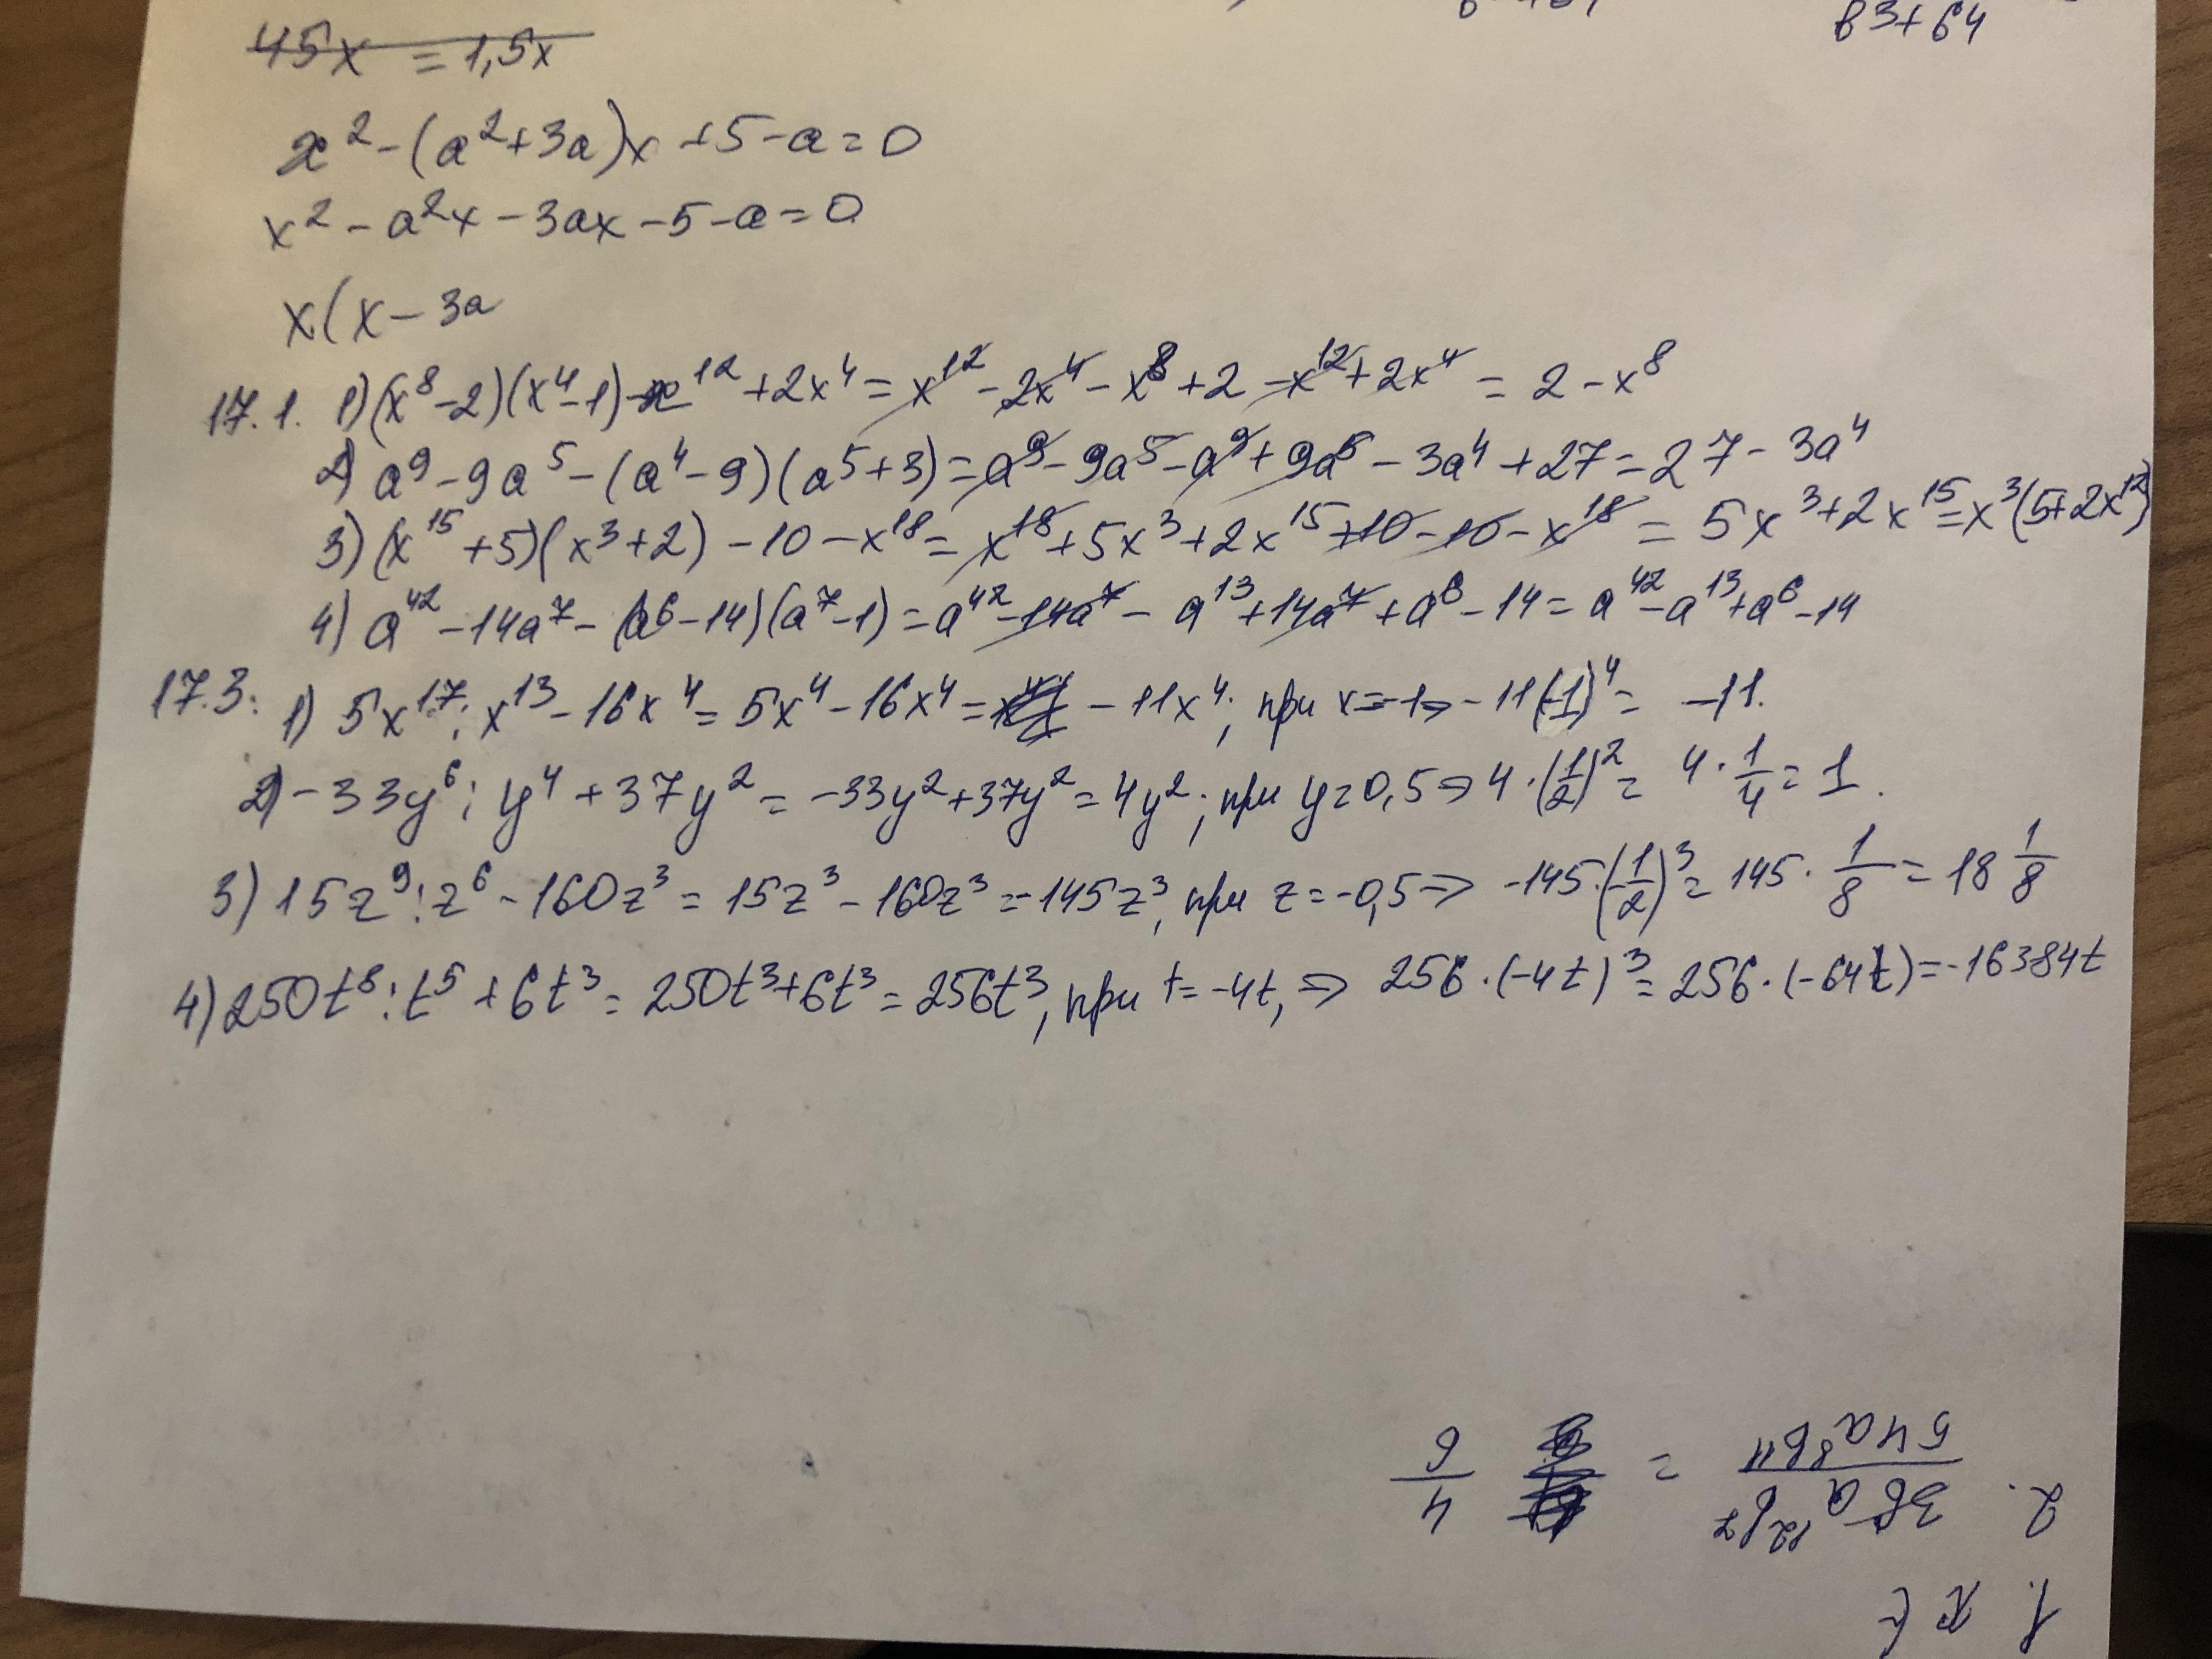 b3+64
45x = 1,5x
x² - (a²+3a)x +5-a=0
x² - a²x - 3ax - 5 - a = 0
x(x - 3a
17.1. 1) (x⁸-2)(x⁴-1) - x¹² + 2x⁴ = x¹² - 2x⁴ - x⁸ + 2 - x¹² + 2x⁴ = 2 - x⁸
2) a⁹ - 9a⁵ - (a⁴-9)(a⁵+3) = a⁹ - 9a⁵ - a⁹ + 9a⁵ - 3a⁴ + 27 = 27 - 3a⁴
3) (x¹⁵+5)(x³+2) - 10 - x¹⁸ = x¹⁸ + 5x³ + 2x¹⁵ + 10 - 10 - x¹⁸ = 5x³ + 2x¹⁵ = x³(5+2x¹²)
4) a⁴² - 14a⁷ - (a⁶-14)(a⁷-1) = a⁴² - 14a⁷ - a¹³ + 14a⁷ + a⁶ - 14 = a⁴² - a¹³ + a⁶ - 14
17.3: 1) 5x¹⁷ : x¹³ - 16x⁴ = 5x⁴ - 16x⁴ = - 11x⁴; при x=-1 ⇒ - 11(-1)⁴ = -11.
2) - 33y⁶ : y⁴ + 37y² = -33y² + 37y² = 4y²; при y=0,5 ⇒ 4·(1/2)² = 4·1/4 = 1.
3) 15z⁹ : z⁶ - 160z³ = 15z³ - 160z³ = -145z³, при z=-0,5 ⇒ -145·(-1/2)³ = 145·1/8 = 18 1/8
4) 250t⁸ : t⁵ + 6t³ = 250t³ + 6t³ = 256t³, при t=-4t, ⇒ 256·(-4t)³ = 256·(-64t) = -16384t
1. x
2. 36a¹²b⁷/54a⁸b¹¹ = 4/6